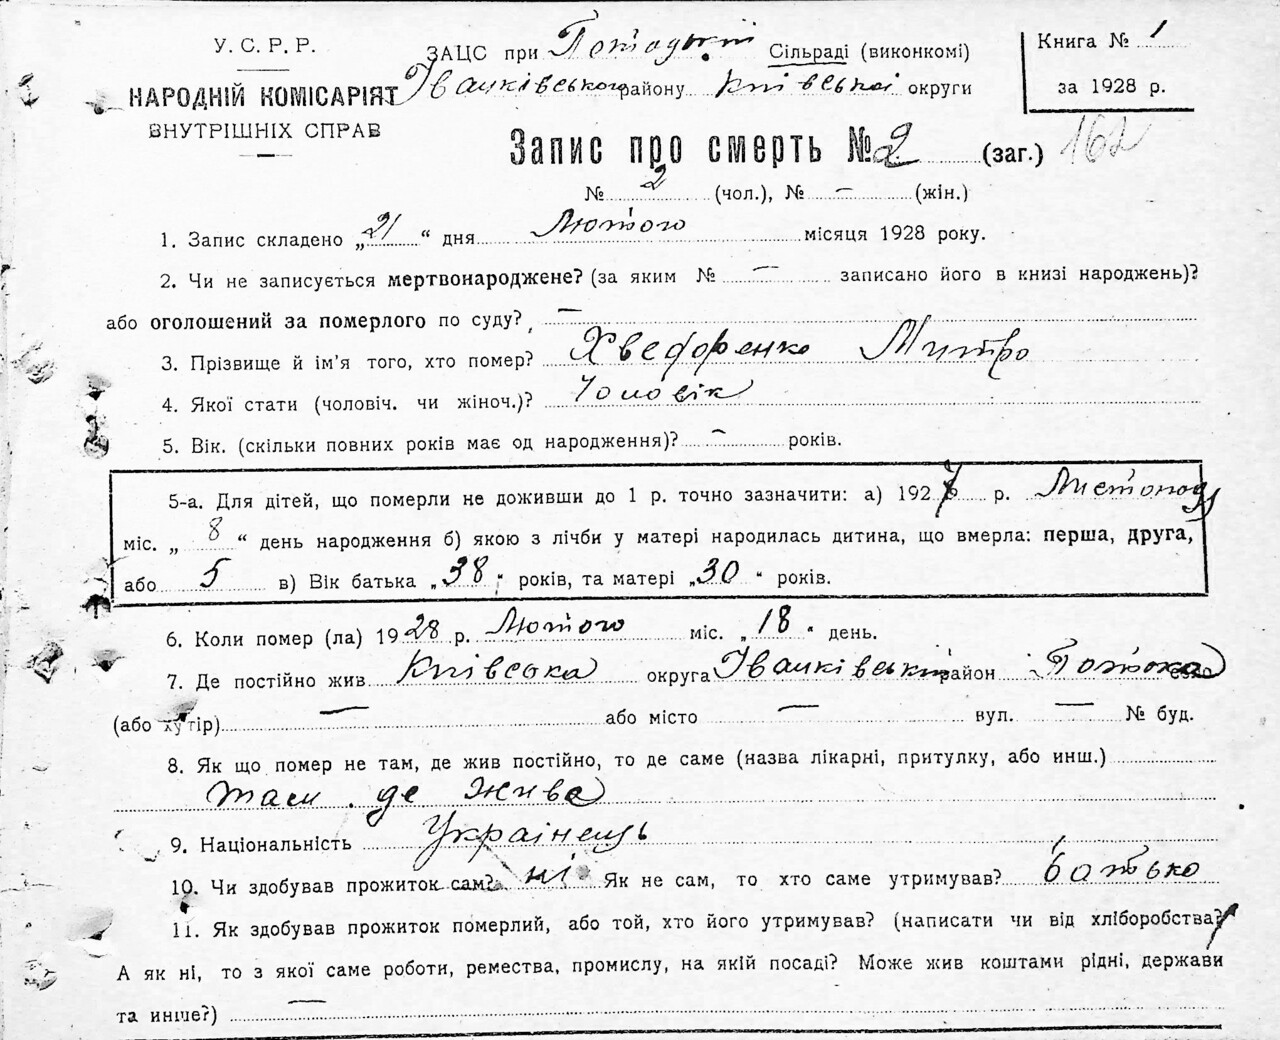 У. С. Р. Р.
НАРОДНІЙ КОМІСАРІЯТ
ВНУТРІШНІХ СПРАВ
ЗАЦС при Сільраді (виконкомі)
Іванківського району Київської округи
Книга № 1
за 1928 р.
Запис про смерть № 2 (заг.) 162
№ 2 (чол.), № — (жін.)
1. Запис складено „21“ дня Лютого місяця 1928 року.
2. Чи не записується мертвонароджене? (за яким № — записано його в книзі народжень)?
або оголошений за померлого по суду? —
3. Прізвище й ім'я того, хто помер? Хведоренко Митро
4. Якої стати (чоловіч. чи жіноч.)? Чоловік
5. Вік. (скільки повних років має од народження)? — років.
5-а. Для дітей, що померли не доживши до 1 р. точно зазначити: а) 1927 р. Листопад
міс. „8“ день народження б) якою з лічби у матері народилась дитина, що вмерла: перша, друга,
або 5 в) Вік батька „38“ років, та матері „30“ років.
6. Коли помер (ла) 1928 р. Лютого міс. „18“ день.
7. Де постійно жив Київська округа Іванківський район село
(або хутір) — або місто — вул. — № буд.
8. Як що помер не там, де жив постійно, то де саме (назва лікарні, притулку, або инш.)
там де жив
9. Національність Українець
10. Чи здобував прожиток сам? ні Як не сам, то хто саме утримував? батько
11. Як здобував прожиток померлий, або той, хто його утримував? (написати чи від хліборобства?
А як ні, то з якої саме роботи, ремества, промислу, на якій посаді? Може жив коштами рідні, держави
та инше?) —